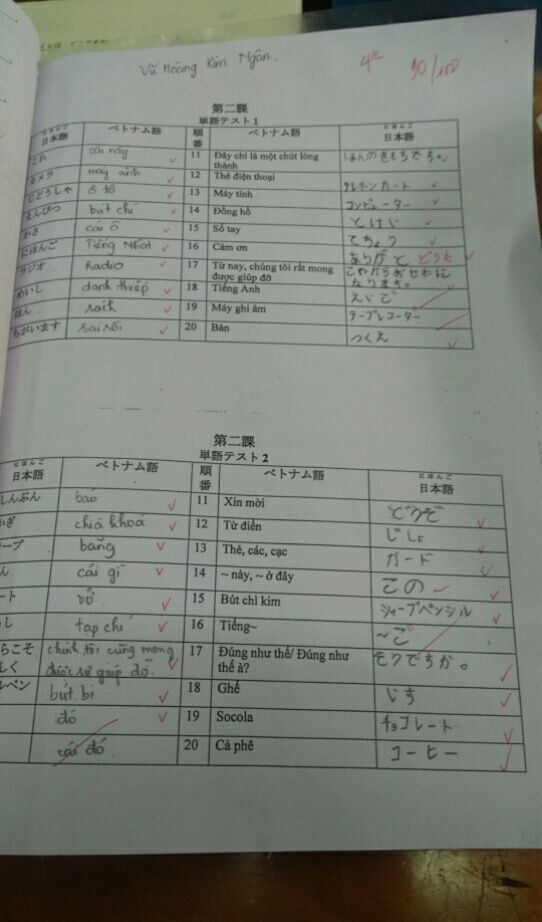 Vũ Hoàng Kim Ngân.
90/100
第二課
単語テスト1
にほんご
日本語 ベトナム語 順番 ベトナム語 日本語
これ cái này 11 Đây chỉ là một chút lòng thành ほんのきもちです。
カメラ máy ảnh 12 Thẻ điện thoại テレホンカード
じどうしゃ ô tô 13 Máy tính コンピューター
えんぴつ bút chì 14 Đồng hồ とけい
かさ cái ô 15 Sổ tay てちょう
にほんご Tiếng Nhật 16 Cám ơn ありがと どうも
ラジオ Radio 17 Từ nay, chúng tôi rất mong được giúp đỡ これからおせわになります。
めいし danh thiếp 18 Tiếng Anh えいご
ほん sách 19 Máy ghi âm テープレコーター
ちがいます sai rồi 20 Bàn つくえ
第二課
単語テスト2
にほんご
日本語 ベトナム語 順番 ベトナム語 日本語
しんぶん báo 11 Xin mời どうぞ
かぎ chìa khoá 12 Từ điển じしょ
ープ băng 13 Thẻ, các, cạc カード
ん cái gì 14 ~ này, ~ ở đây この
ート 15 Bút chì kim シャープペンシル
し tạp chí 16 Tiếng~ ~ご
らこそ しく chính tôi cũng mong được sự giúp đỡ. 17 Đúng như thế/ Đúng như thế à? そうですか。
ルペン bút bi 18 Ghế いす
đó 19 Socola チョコレート
cái đó 20 Cà phê コーヒー